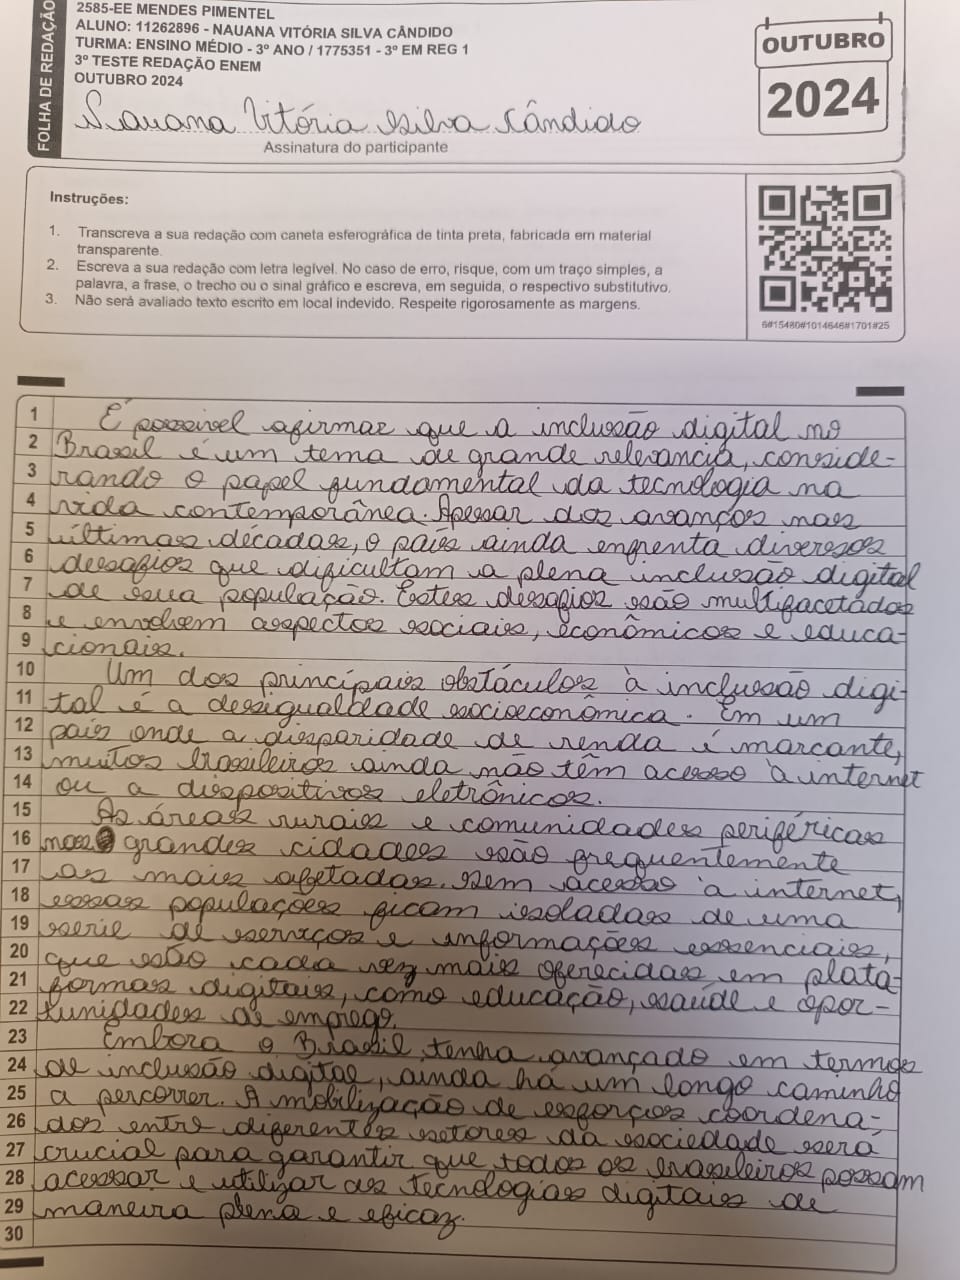 FOLHA DE REDAÇÃO
2585-EE MENDES PIMENTEL
ALUNO: 11262896 - NAUANA VITÓRIA SILVA CÂNDIDO
TURMA: ENSINO MÉDIO - 3º ANO / 1775351 - 3º EM REG 1
3º TESTE REDAÇÃO ENEM
OUTUBRO 2024
Nauana Vitória Silva Cândido
Assinatura do participante
OUTUBRO
2024
Instruções:
1. Transcreva a sua redação com caneta esferográfica de tinta preta, fabricada em material
transparente.
2. Escreva a sua redação com letra legível. No caso de erro, risque, com um traço simples, a
palavra, a frase, o trecho ou o sinal gráfico e escreva, em seguida, o respectivo substitutivo.
3. Não será avaliado texto escrito em local indevido. Respeite rigorosamente as margens.
6#15480#1014646#1701#25
1 É possível afirmar que a inclusão digital no
2 Brasil é um tema de grande relevancia, conside-
3 rando o papel fundamental da tecnologia na
4 vida contemporânea. Apesar dos avanços nas
5 últimas décadas, o país ainda enfrenta diversos
6 desafios que dificultam a plena inclusão digital
7 de sua população. Estes desafios são multifacetados
8 e envolvem aspectos sociais, econômicos e educa-
9 cionais.
10 Um dos principais obstáculos à inclusão digi-
11 tal é a desigualdade socioeconômica. Em um
12 país onde a disparidade de renda é marcante,
13 muitos brasileiros ainda não têm acesso à internet
14 ou a dispositivos eletrônicos.
15 As áreas rurais e comunidades periféricas
16 nas grandes cidades são frequentemente
17 as mais afetadas. Sem acesso à internet,
18 essas populações ficam isoladas de uma
19 serie de serviços e informações essenciais,
20 que são cada vez mais oferecidas em plata-
21 formas digitais, como educação, saúde e opor-
22 tunidades de emprego.
23 Embora o Brasil tenha avançado em termos
24 de inclusão digital, ainda há um longo caminho
25 a percorrer. A mobilização de esforços coordena-
26 dos entre diferentes setores da sociedade será
27 crucial para garantir que todos os brasileiros possam
28 acessar e utilizar as tecnologias digitais de
29 maneira plena e eficaz.
30